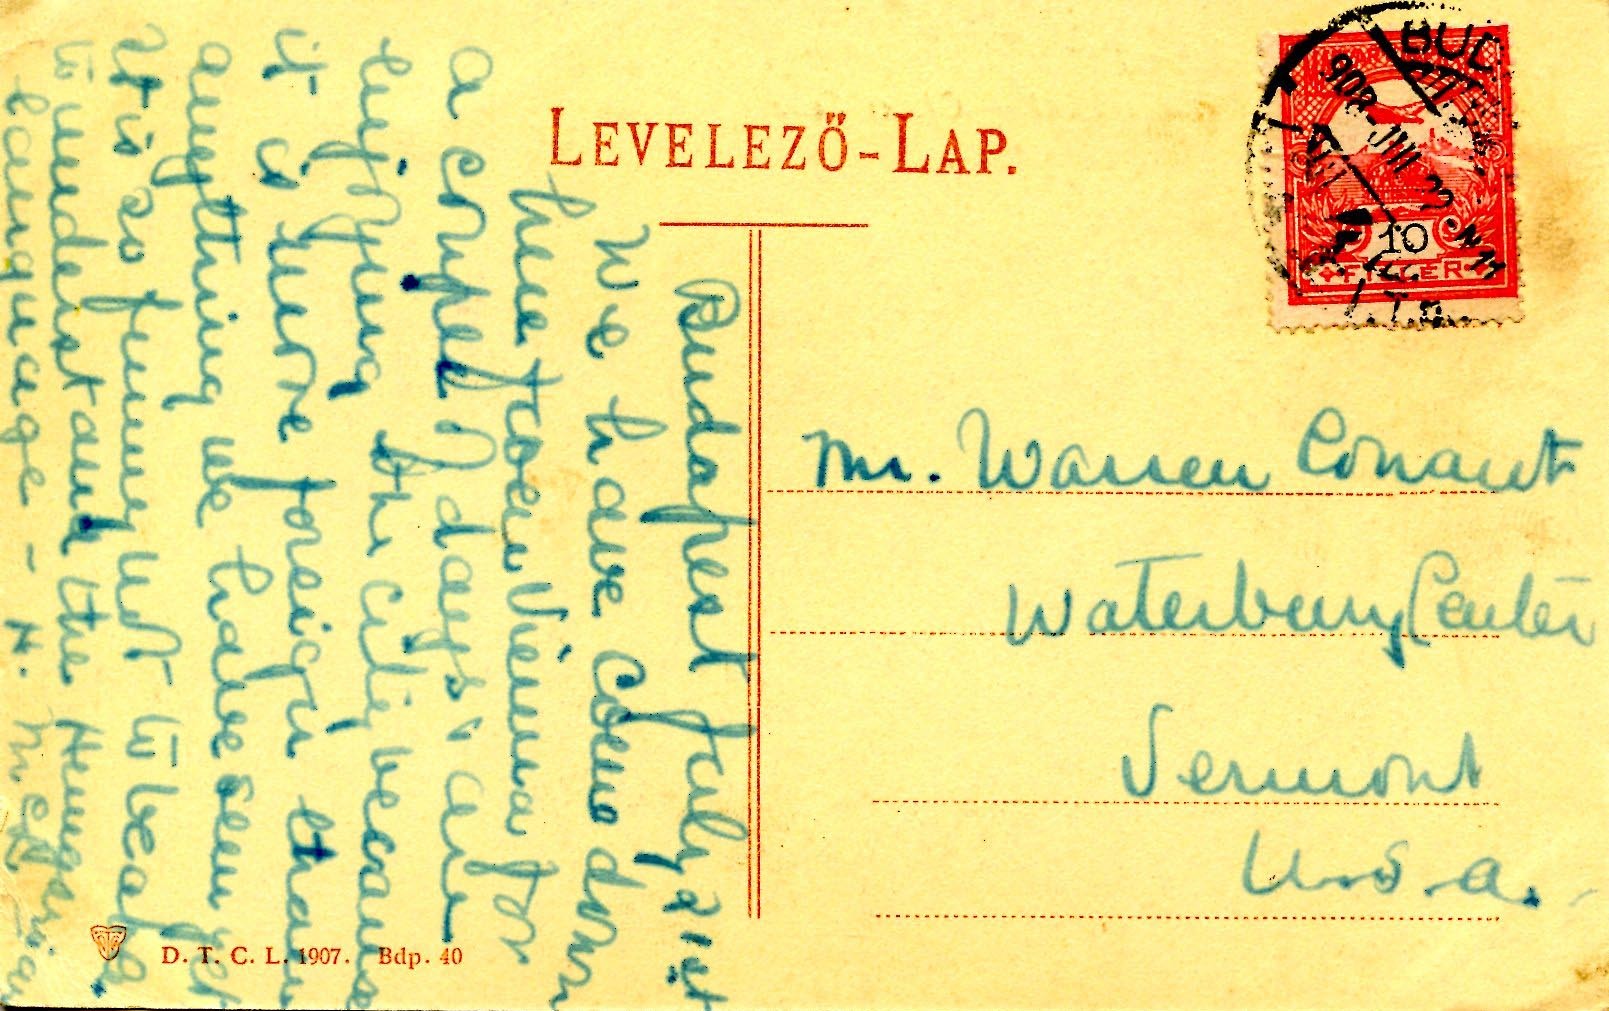 LEVELEZŐ-LAP.
BUD
908 JUL 22
10
FILLER
Budapest July 21st
We have come down
here from Vienna for
a couple of days & are
enjoying the city because
it is more foreign than
anything we have seen yet
It is so funny not to be able
to understand the Hungarian
language - H. M.
Mr. Warren Conant
Waterbury Center
Vermont
U.S.A.
D. T. C. L. 1907. Bdp. 40